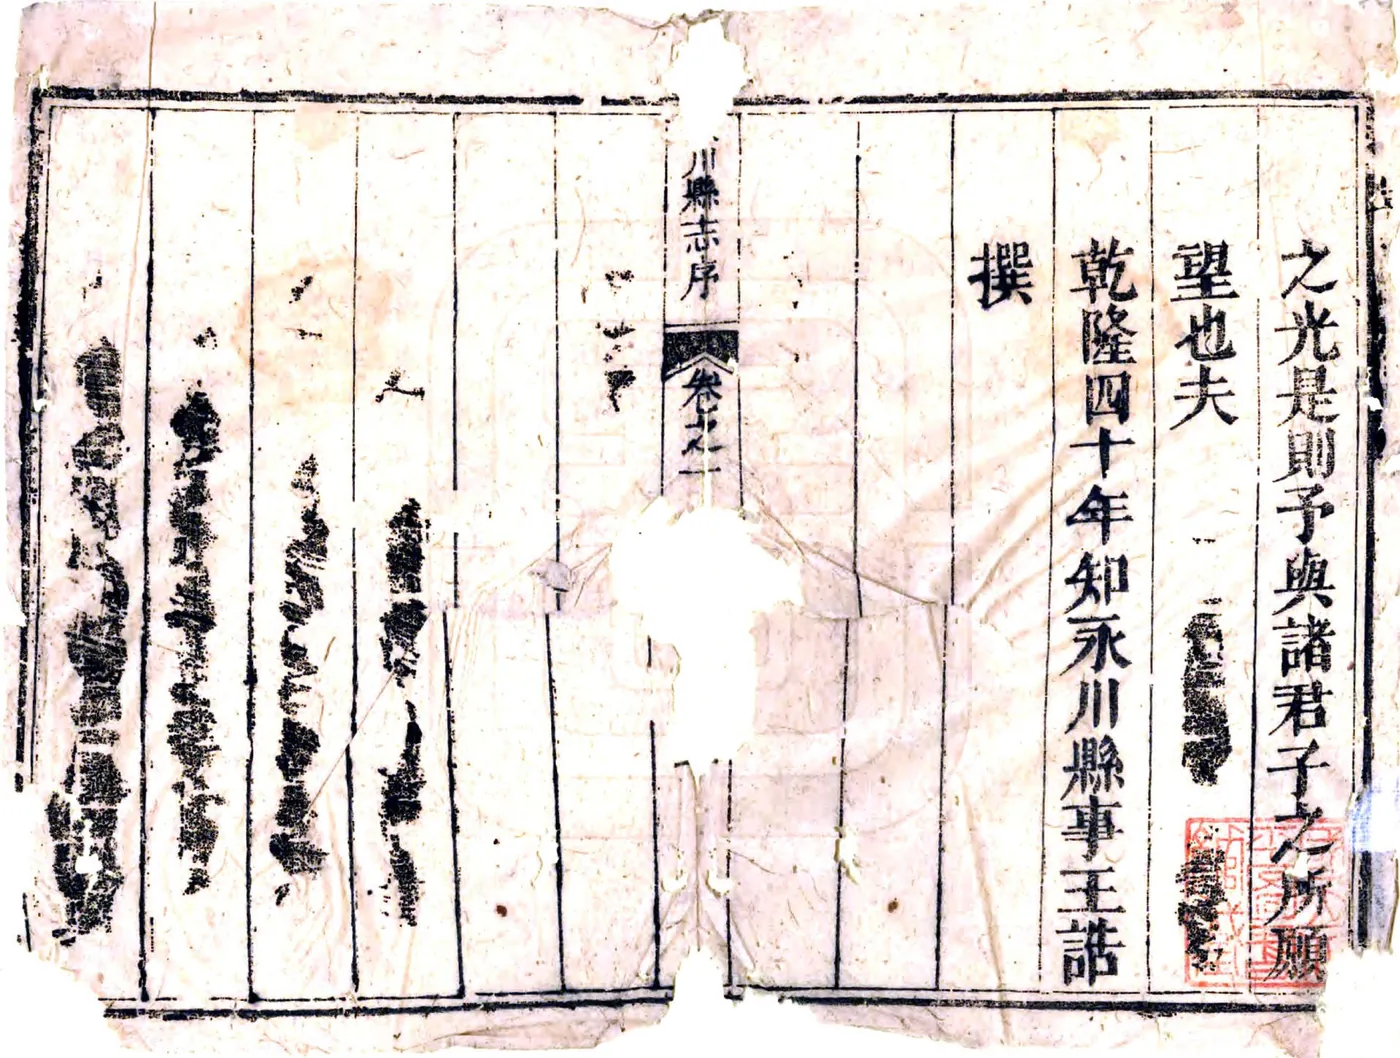 之光是則予與諸君子之所願
望也夫
乾隆四十年知永川縣事王誥
撰
川縣志序
卷之一